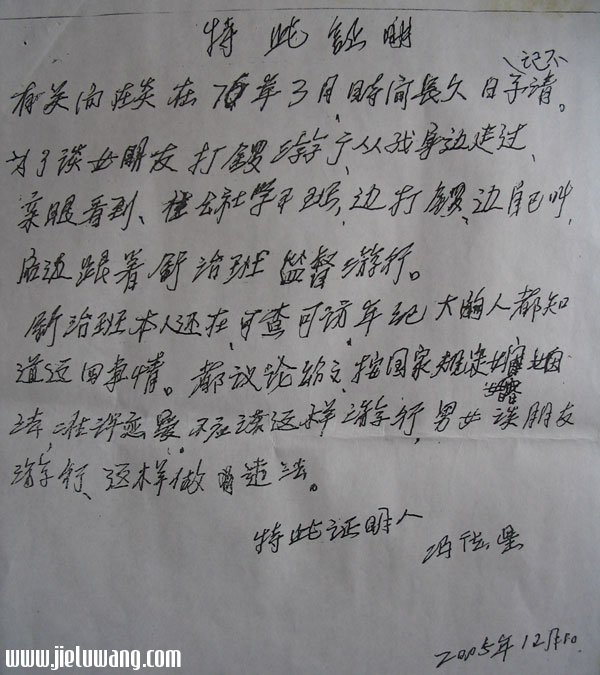 特此証明
有关 在 在 76年3月,时间长久 日子记不清。
为了谈女朋友 打锣游 从我身边走过、
亲眼看到、 出 学习班,边打锣、边自己叫,
后边跟着 舒治班 监督游行。
舒治班本人还在,可查可访,年纪大 人都知
道这回事情。都议论 按国家规定婚姻
法,准许恋爱,不应该这样游行,男女谈朋友
游行、这样做 违法。
特此证明人
冯
2005年12月
www.jieluwang.com